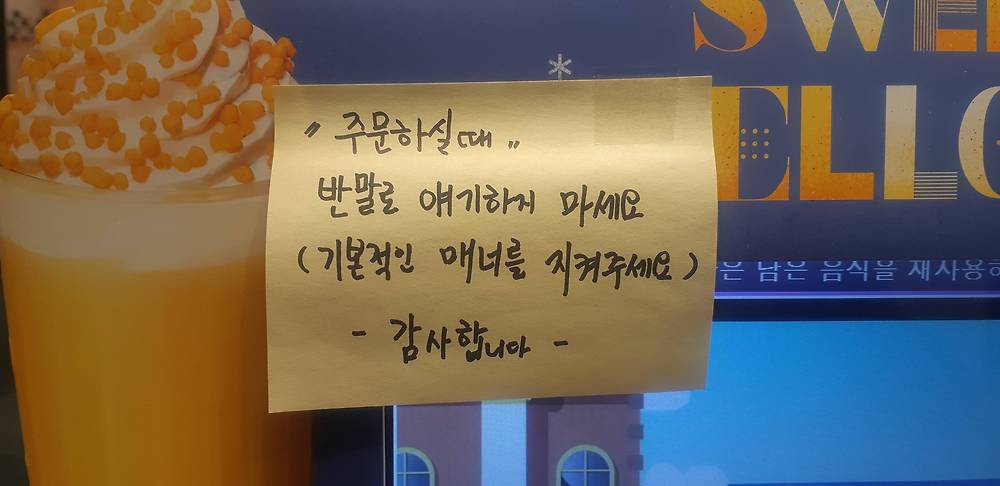 SWE
ELLO
"주문하실때"
반말로 얘기하지 마세요
(기본적인 매너를 지켜주세요)
- 감사합니다 -
은 남은 음식을 재사용하